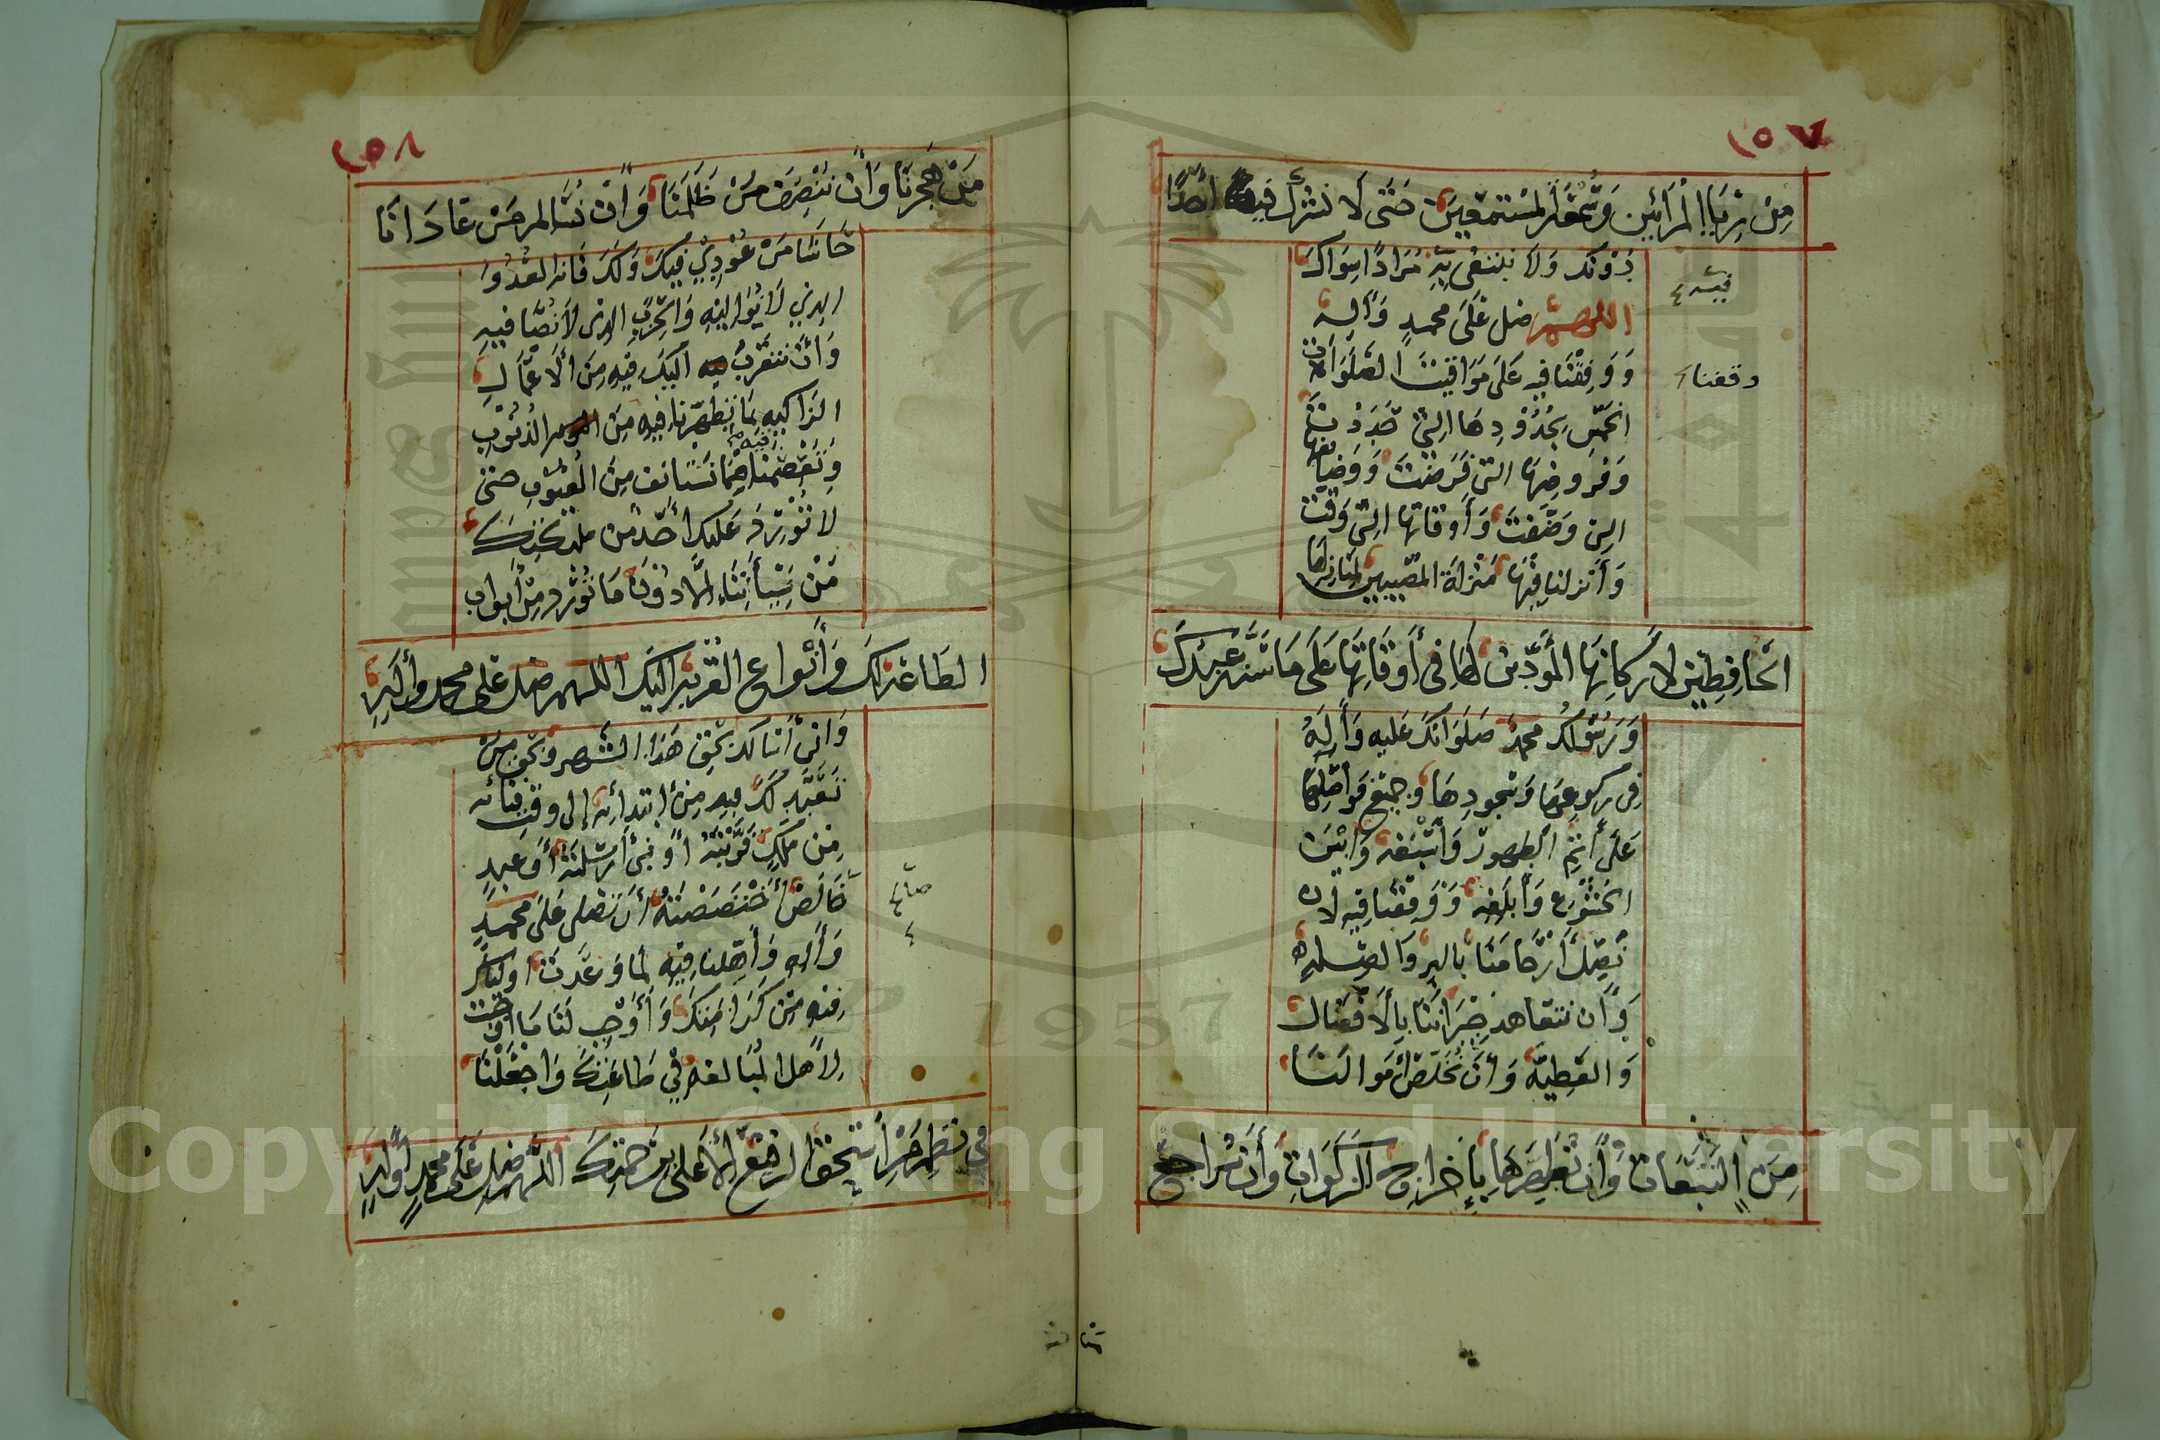 ١٥٧
مِنْ رِيَاءِ الْمُرَائِينَ وَسُمْعَةِ الْمُسْتَمِعِينَ حَتَّى لَا نُشْرِكَ فِيهِ أَحَدًا
دُوْنَكَ وَلَا نَبْتَغِي بِهِ مُرَادًا سِوَاكَ
فيه
اللهم صل عَلَى محمدٍ وَآلِهِ
وَوَفِقْنَا فِيهِ عَلَى مَوَاقِيتِ الصَّلَوَاتِ
وقفنا
الخَمْسِ بِحُدُوْدِهَا الَّتِي حَدَدْتَ
وَفُرُوضِهَا التي فَرَضْتَ وَوَظَايِفِهَا
التي وَظَّفْتَ وَأَوقَاتِهَا الَّتِي وَقَّتَّ
وَأَنزِلنَا فِيْهَا مَنْزِلَةَ المُصِيبِينَ لِمَنَازِلِهَا
الحَافِظِينَ لِأَرْكَانِهَا المُؤَدِّينَ لها فِي أَوْقَاتِهَا عَلَى مَا سَنَّهُ عَبْدُكَ
وَرَسُوْلُكَ محمدٌ صَلَوَاتُكَ عَلَيهِ وَآلِهِ
فِي رُكوعِهَا وَسُجودِهَا وَجميْعِ فَوَاضِلِهَا
عَلَى أَتَمِّ الطهورِ وَأَسْبَغِهِ وَابْيَنِ
الخُشُوْعِ وَأَبلَغِهِ وَوَفِّقْنَا فِيهِ لِأَن
نَصِلَ أَرْحَامَنَا بِالبِرِّ وَالصِّلَةِ
وَأَن نتعَاهَدَ جِيرَانَنَا بِالأِفْضَالِ
وَالعَطِيَّةِ وَأَنْ نُخَلِّصَ أَمْوَالَنَا
مِنَ التَّبِعَاتِ وَأَن نُطَهِّرَهَا بِإِخْرَاجِ الزَّكَوَاتِ وَأَن نُرَاجِعَ
١٥٨
مَنْ هَجَرَنَا وَأَن نُنْصِفَ مَنْ ظَلَمَنَا وَأَنْ نُسَالِمَ مَنْ عَادَانَا
حَاشَا مَنْ عُوْدِيَ فِيكَ وَلَكَ فَانه العَدُوُّ
الذي لَا نُوَالِيْهِ وَالحِزْبُ الذي لَا نُصَافِيهِ
وَأَنْ نَتَقَرَّبَ إِلَيكَ فِيْهِ مِنَ الْأَعْمَالِ
الزاكيه بِمَا تُطَهِّرُنَا فِيهِ مِنَ الذُّنُوْبِ
وَتَعْصِمُنَا فيه مِمَّا نَسْتَانِف مِنَ الْعُيُوْبِ حتى
لَا يُوْرِدَ عَلَيكَ أَحَدٌ مِن مَلَائِكَتِكَ
إِلَّا دُوْنَ مَا نُوْرِدُ مِنْ أَبوَابِ
الطَاعَةِ لَكَ وَأَنْوَاعِ القُرْبَةِ إِلَيكَ اللهم صل على محمد وآلِهِ
وَإِنِّي أَسْأَلُكَ بِحَقِّ هَذَا الشهر وَبِحَقِّ مَنْ
تَعَبَّدَ لَكَ فِيهِ مِنْ ابتدائِهِ إِلى وَقْتِ فَنَائِه
مِنْ مَلَكٍ قَرَّبْتَهُ أَوْ نَبِيٍّ أَرْسَلْتَهُ أَوْ عَبدٍ
صَالحٍ أَخْتَصَصْتَهُ أَن تُصَلِي عَلَى محمدٍ
وَآلِهِ وَأَهِّلْنَا فِيْهِ لِمَا وَعَدْتَ أَوْلِيَائَكَ
فِيْهِ مِنْ كَرَامَتِكَ وَأَوْجِب لَنَا مَا أَوْجَبْتَ
لِأَهل الْمُبَالَغَةِ فِي طَاعَتِكَ وَاجْعَلْنَا
في نَظْمِ مَنْ اسْتَحَقَّ الرَّفِيْعَ الأَعْلَى بِرَحْمَتِكَ اللهم صل عَلَى محمدٍ وَآلِهِ